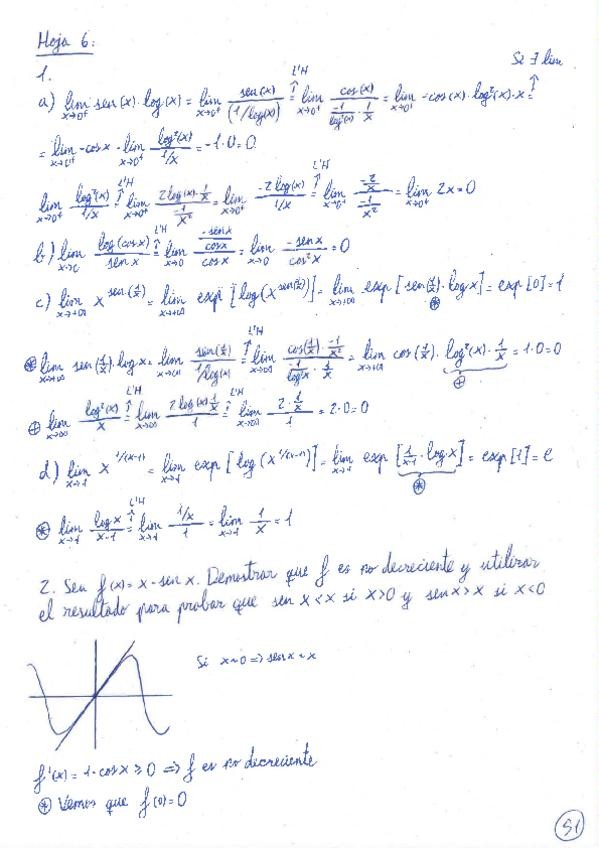 Hoja 6:
1.
Si ∃ lim
a) lim x→0+ sen(x)·log(x) = lim x→0+ sen(x)/(1/log(x)) =(L'H) lim x→0+ cos(x)/(-1/log²(x) · 1/x) = lim x→0+ -cos(x)·log²(x)·x =
= lim x→0+ -cos x · lim x→0+ log²(x)/(1/x) = -1·0 = 0
lim x→0+ log²(x)/(1/x) =(L'H) lim x→0+ (2log(x)·1/x)/(-1/x²) = lim x→0+ -2log(x)/(1/x) =(L'H) lim x→0+ (-2/x)/(-1/x²) = lim x→0+ 2x = 0
b) lim x→0 log(cos x)/sen x =(L'H) lim x→0 (-sen x/cos x)/cos x = lim x→0 -sen x/cos² x = 0
c) lim x→+∞ x^sen(1/x) = lim x→+∞ exp[log(x^sen(1/x))] = lim x→+∞ exp[sen(1/x)·log x] = exp[0] = 1
⊛
⊛ lim x→+∞ sen(1/x)·log x = lim x→+∞ sen(1/x)/(1/log(x)) =(L'H) lim x→+∞ (cos(1/x)·-1/x²)/(-1/log²x · 1/x) = lim x→+∞ cos(1/x)·log²(x)·1/x = 1·0 = 0
⊕
⊕ lim x→∞ log²(x)/x =(L'H) lim x→∞ (2log(x)·1/x)/1 =(L'H) lim x→∞ (2·1/x)/1 = 2·0 = 0
d) lim x→1 x^1/(x-1) = lim x→1 exp[log(x^1/(x-1))] = lim x→1 exp[1/(x-1)·log x] = exp[1] = e
⊛
⊛ lim x→1 log x/(x-1) =(L'H) lim x→1 (1/x)/1 = lim x→1 1/x = 1
2. Sea f(x)= x - sen x. Demostrar que f es no decreciente y utilizar
el resultado para probar que sen x < x si x>0 y sen x > x si x<0
Si x~0 => sen x ~ x
f'(x) = 1 - cos x ≥ 0 => f es no decreciente
⊛ Vemos que f(0)=0
51